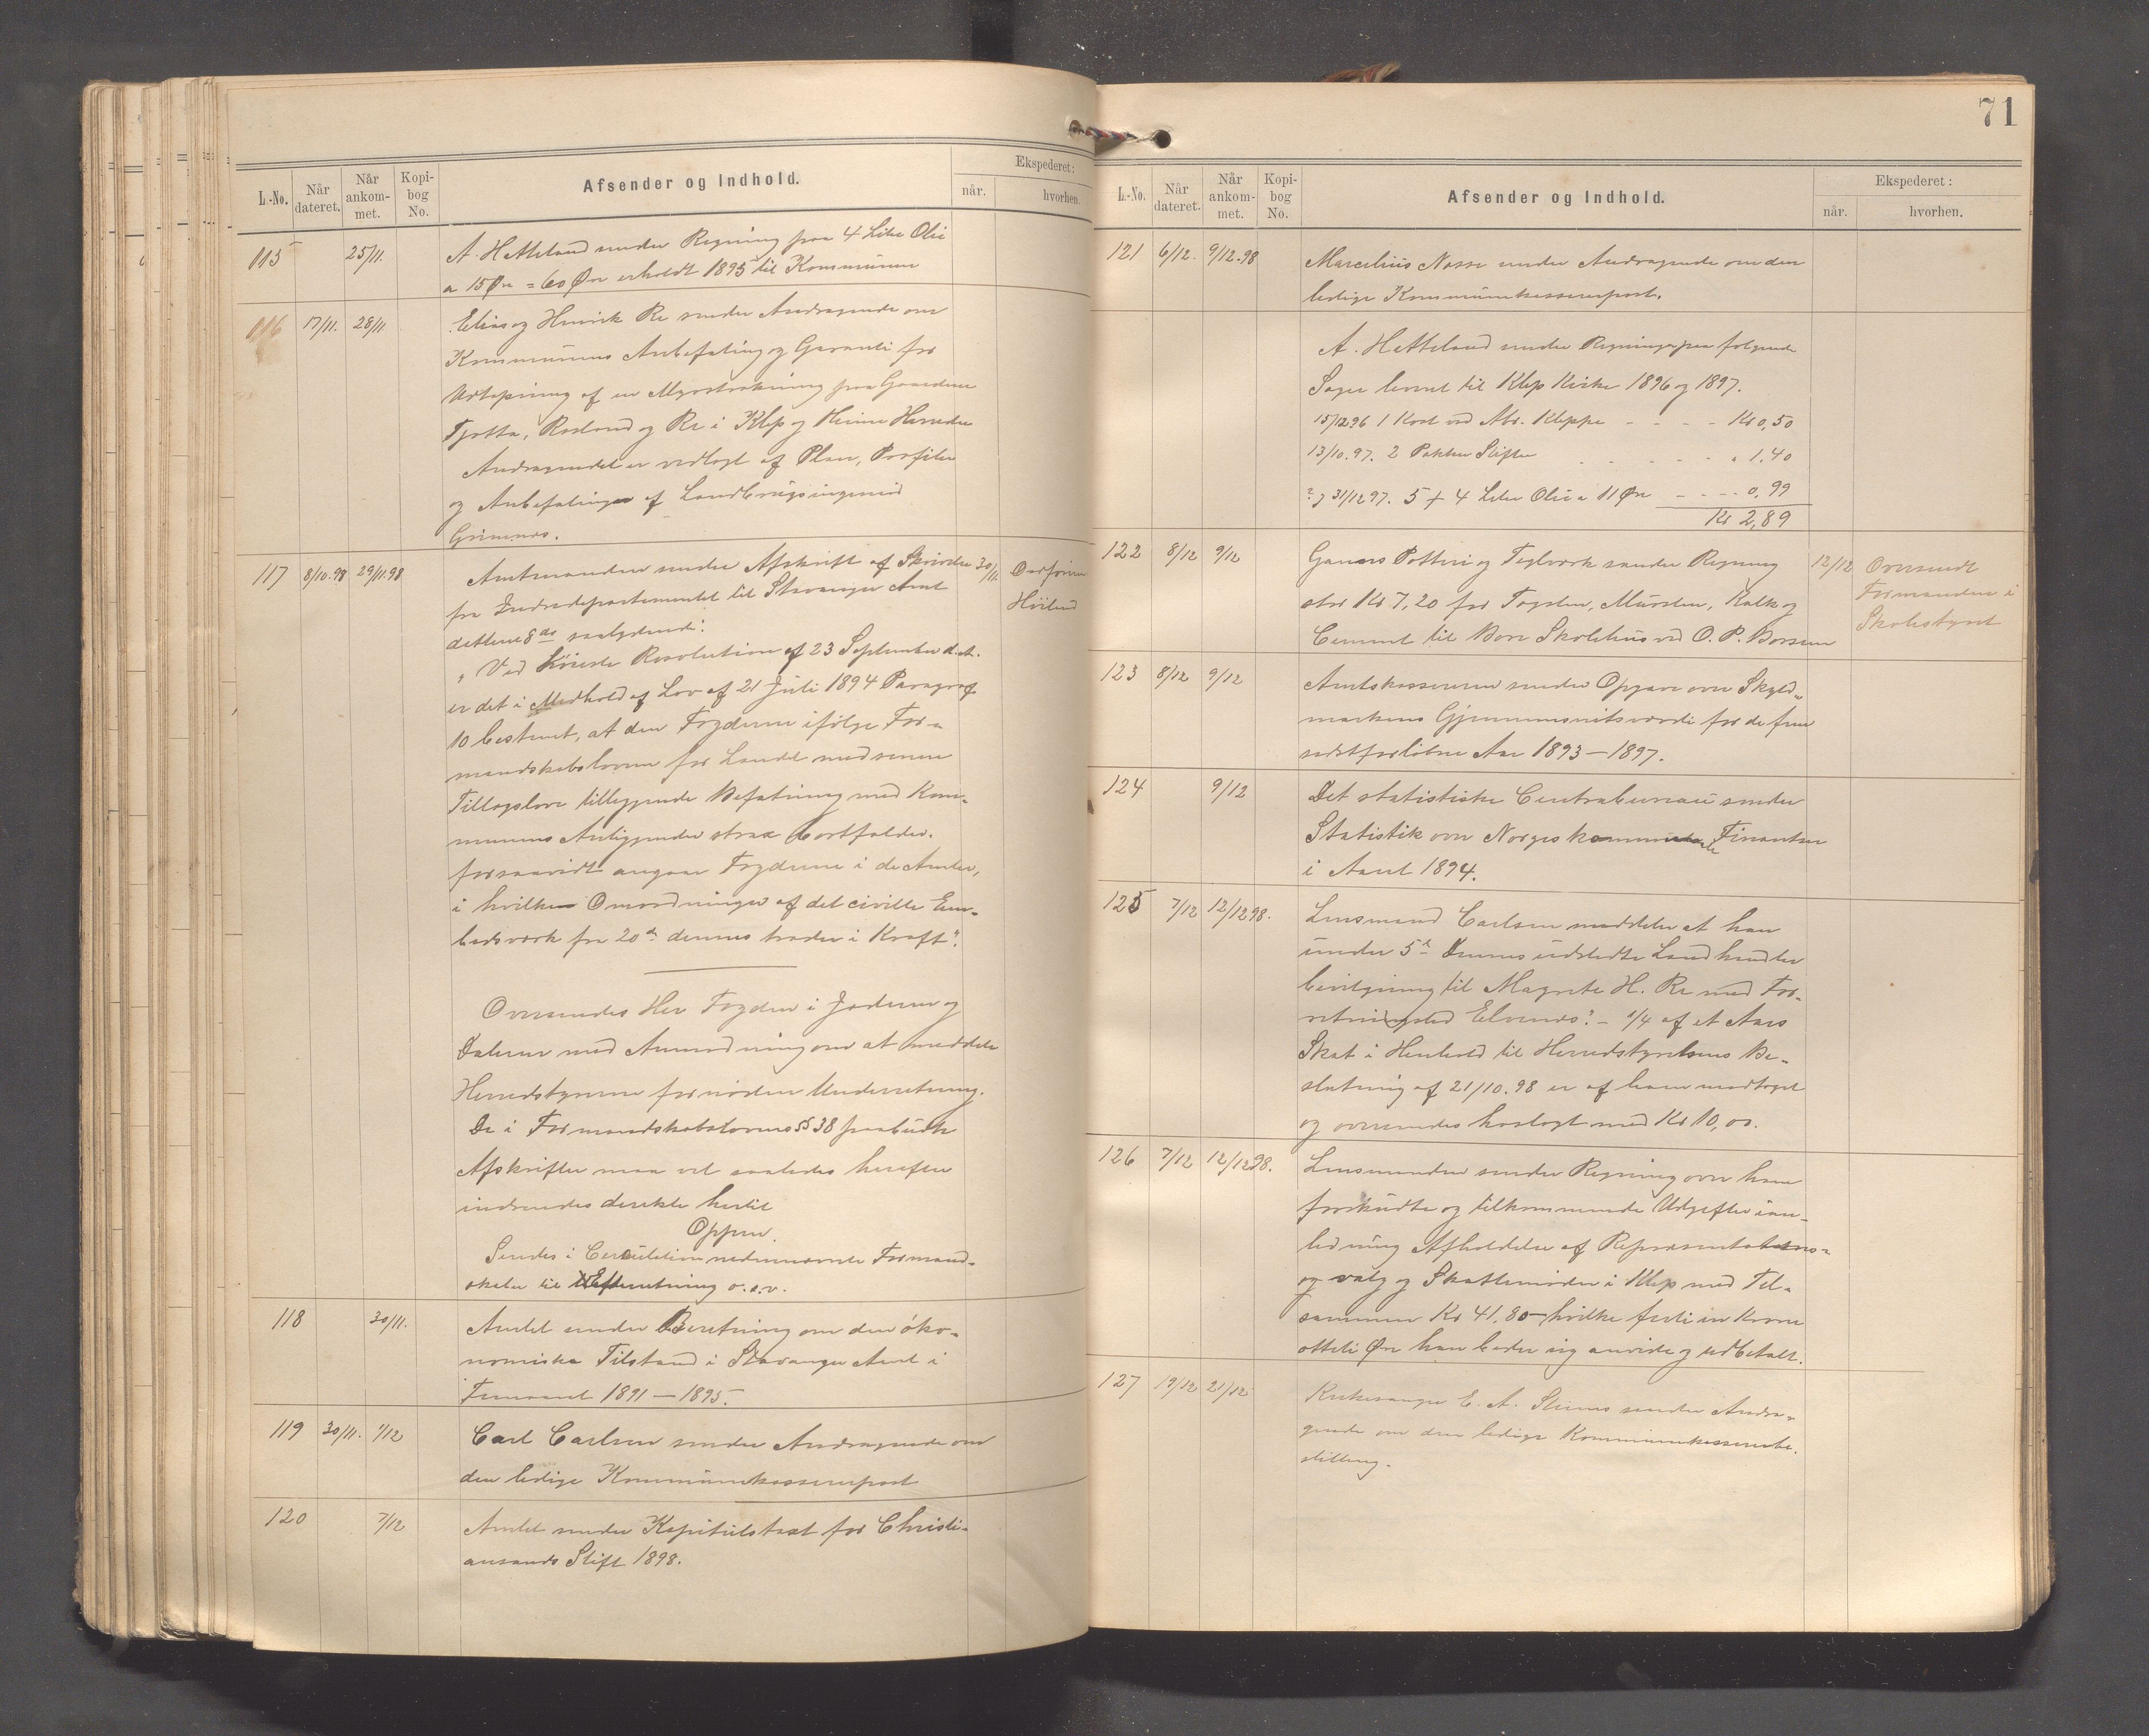 L.-No.
Når dateret.
Når ankom-met.
Kopi-bog No.
Afsender og Indhold.
Ekspederet:
når.
hvorhen.
115 25/11. A. Hetteland sender Regning paa 4 Liter Olie
a 15 Øre = 60 Øre erholdt 1895 til Kommunen
116 17/11. 28/11 Elias og Henrik Re sender Andragende om
Kommunens Anbefaling og Garanti for
Udtapning af en Myrstrækning paa Gaardene
Tjøtta, Rosland og Re i Klep og Heime Herreder
Andragendet er vedlagt af Plan, Profiler
og Anbefalinger af Landbrugsingeniør
Grimnes.
117 8/10.98 29/11.98 Amtmanden sender Afskrift af Skrivelse 30/11
fra Indredepartementet til Stavanger Amt Høiland
dettens 8de saalydende:
"Ved Høieste Resolution af 23 September d.A.
er det i Medhold af Lov af 21 Juli 1894 Paragraf
10 bestemt, at den Fogderne ifølge For-
mandskabsloven for Landet med senere
Tillægslove tilliggende Befatning med Kom-
munens Anliggender strax bortfalder.
forsaavidt angaar Fogderne i de Amter,
i hvilke Omordninger af det civille Em-
bedsværk fra 20de dennes træder i Kraft".
Oversendes Her Fogden i Jæderen og
Dalerne med Anmodning om at meddele
Herredstyrerne fornøden Underretning.
De i Formandskabslovens § 38 paabudte
Afskrifter maa vel saaledes herefter
indsendes direkte hertil
Oppen.
Sendes i Cerculation nedennævnte Formand-
skaber til Efterretning o.s.v.
118 30/11. Amtet sender Beretning om den öko-
nomiske Tilstand i Stavanger Amt i
Femaaret 1891 — 1895.
119 30/11. 1/12 Carl Carlsen sender Andragende om
den ledige Kommunekassererpost
120 7/12 Amtet sender Kapitulstaxt for Christi-
ansands Stift 1898.
71
L.-No.
Når dateret.
Når ankom-met.
Kopi-bog No.
Afsender og Indhold.
Ekspederet:
når.
hvorhen.
121 6/12. 9/12.98 Marcelius Nasse sender Andragende om den
ledige Kommunekassererpost.
A. Hetteland sender Regning paa følgende
Sager leveret til Klep Kirke 1896 og 1897.
15/12 96 1 Kost ved Abr. Kleppe - - - - Kr 0,50
13/10.97. 2 Pakker Stifter - - - - " 1.40
? 31/12 97. 5 + 4 Liter Olie a 11 Øre - - - - 0,99
Kr 2,89
122 8/12 9/12 Ganns Potteri og Teglværk sender Regning 12/12 Oversendt
stor Kr 7,20 for Tagsten, Mursten, Kalk og Formanden i
Cement til Bore Skolehus ved O. P. Borsen Skolestyret
123 8/12 9/12 Amtskassereren sender Opgave over Skyld-
markens Gjennemsnitsværdi for de fem
sidstforløbne Aar 1893 — 1897.
124 9/12 Det statistiske Centralbureau sender
Statistik over Norges kommunale Finantser
i Aaret 1894.
125 7/12 12/12 98. Lensmand Carlsen meddeler at han
under 5te Dennes udstedte Landhandler
bevilgning til Magrete H. Re med For-
retningsted Elvenes? - 1/4 af et Aars
Skat i Henhold til Herredstyrelsens Be-
slutning af 21/10.98 er af ham modtaget
og oversendes hoslagt med Kr 10,00.
126 7/12 12/12 98. Lensmanden sender Regning over ham
forskudte og tilkommende Udgifter i an-
ledning Afholdelse af Repræsentations-
og valg og Skattemøder i Klep med Til-
sammen Kr 41.80 hvilke førti en Krone
otteti Øre han beder sig anvist og udbetalt.
127 19/12 21/12 Kirkesanger E. A. Stimes sender Andra-
gende om den ledige Kommunekassererbe-
stilling.